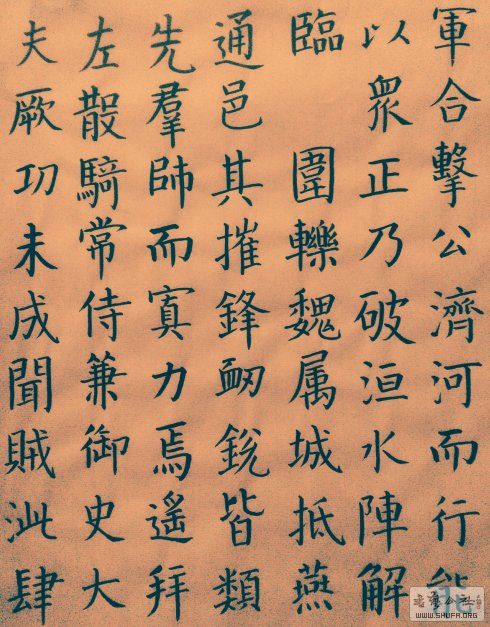 軍合擊公濟河而行能
以衆正乃破洹水陣解
臨 圍轢魏属城抵燕
通邑 其摧鋒衂銳皆類
先羣帥而寘力焉遙拜
左散騎常侍兼御史大
夫厥功未成聞賊泚肆
WWW.SHUFA.ORG